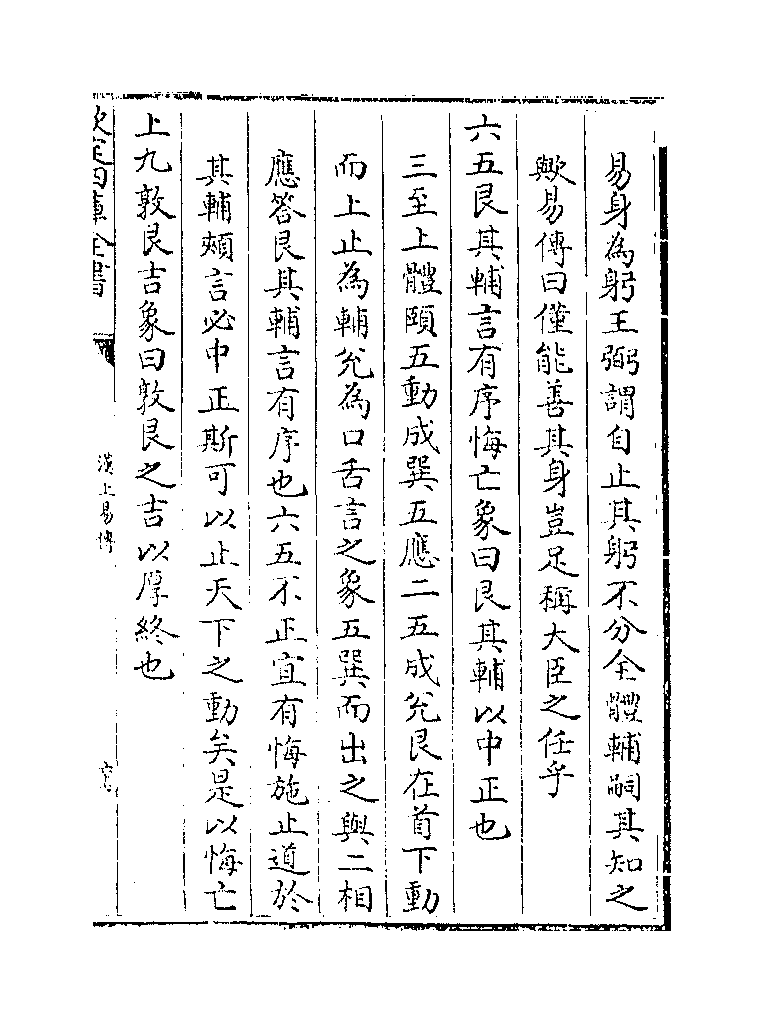 易身為躬王弼謂自止其躬不分全體輔嗣其知之
歟易傳曰僅能善其身豈足稱大臣之任乎
六五艮其輔言有序悔亡象曰艮其輔以中正也
三至上體頤五動成巽五應二五成兊艮在首下動
而上止為輔兊為口舌言之象五巽而出之與二相
應答艮其輔言有序也六五不正宜有悔施止道於
其輔頰言必中正斯可以止天下之動矣是以悔亡
上九敦艮吉象曰敦艮之吉以厚終也
欽定四庫全書
漢上易傳